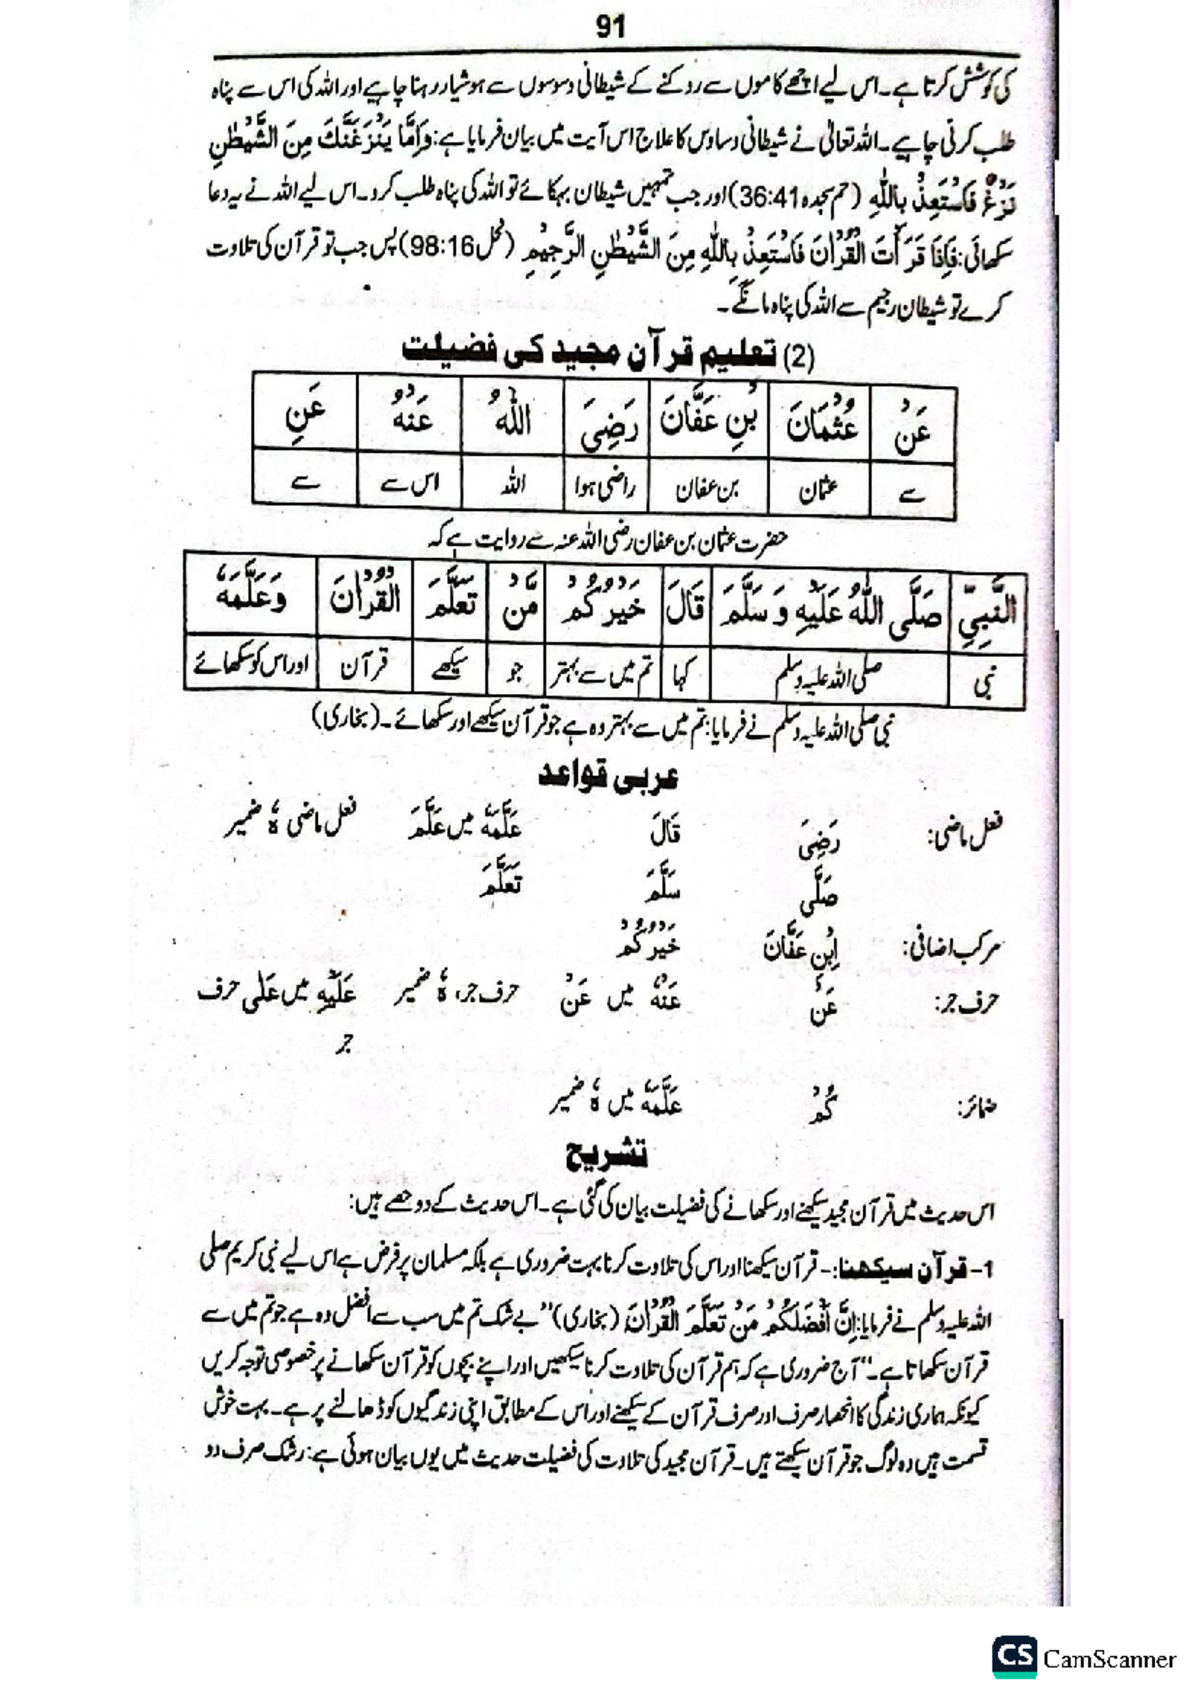 91
کی کوشش کرتا ہے۔ اس لیے اچھے کاموں سے روکنے کے شیطانی وسوسوں سے ہوشیار رہنا چاہیے اور اللہ کی اس سے پناہ
طلب کرنی چاہیے۔ اللہ تعالیٰ نے شیطانی وساوس کا علاج اس آیت میں بیان فرمایا ہے: وَاِمَّا یَنْزَغَنَّكَ مِنَ الشَّیْطٰنِ
نَزْغٌ فَاسْتَعِذْ بِاللّٰهِ (حم سجدہ 36:41) اور جب تمہیں شیطان بہکائے تو اللہ کی پناہ طلب کرو۔ اس لیے اللہ نے یہ دعا
سکھائی: فَاِذَا قَرَأْتَ الْقُرْاٰنَ فَاسْتَعِذْ بِاللّٰهِ مِنَ الشَّیْطٰنِ الرَّجِیْمِ (نحل 98:16) پس جب تو قرآن کی تلاوت
کرے تو شیطان رجیم سے اللہ کی پناہ مانگے۔
(2) تعلیم قرآن مجید کی فضیلت
عَنْ عُثْمَانَ بْنِ عَفَّانَ رَضِیَ اللّٰهُ عَنْهُ عَنِ
سے عثمان بن عفان راضی ہوا اللہ اس سے سے
حضرت عثمان بن عفان رضی اللہ عنہ سے روایت ہے کہ
النَّبِیِّ صَلَّی اللّٰهُ عَلَیْهِ وَ سَلَّمَ قَالَ خَیْرُکُمْ مَّنْ تَعَلَّمَ الْقُرْاٰنَ وَعَلَّمَهٗ
نبی صلی اللہ علیہ وسلم کہا تم میں سے بہتر جو سیکھے قرآن اور اس کو سکھائے
نبی صلی اللہ علیہ وسلم نے فرمایا: تم میں سے بہتر وہ ہے جو قرآن سیکھے اور سکھائے۔ (بخاری)
عربی قواعد
فعل ماضی: رَضِیَ قَالَ عَلَّمَهٗ میں عَلَّمَ فعل ماضی هٗ ضمیر
صَلَّی سَلَّمَ تَعَلَّمَ
مرکب اضافی: اِبْنِ عَفَّانَ خَیْرُکُمْ
حرف جر: عَنْ عَنْهُ میں عَنْ حرف جر، هٗ ضمیر عَلَیْهِ میں عَلٰی حرف
جر
ضمائر: کُمْ عَلَّمَهٗ میں هٗ ضمیر
تشریح
اس حدیث میں قرآن مجید سیکھنے اور سکھانے کی فضیلت بیان کی گئی ہے۔ اس حدیث کے دو حصے ہیں:
1- قرآن سیکھنا:- قرآن سیکھنا اور اس کی تلاوت کرنا بہت ضروری ہے بلکہ مسلمان پر فرض ہے اس لیے نبی کریم صلی
اللہ علیہ وسلم نے فرمایا: اِنَّ اَفْضَلَکُمْ مَنْ تَعَلَّمَ الْقُرْاٰنَ (بخاری) "بے شک تم میں سب سے افضل وہ ہے جو تم میں سے
قرآن سکھاتا ہے۔" آج ضروری ہے کہ ہم قرآن کی تلاوت کرنا سیکھیں اور اپنے بچوں کو قرآن سکھانے پر خصوصی توجہ کریں
کیونکہ ہماری زندگی کا انحصار صرف اور صرف قرآن کے سیکھنے اور اس کے مطابق اپنی زندگیوں کو ڈھالنے پر ہے۔ بہت خوش
قسمت ہیں وہ لوگ جو قرآن سیکھتے ہیں۔ قرآن مجید کی تلاوت کی فضیلت حدیث میں یوں بیان ہوئی ہے: رشک صرف دو
CS CamScanner